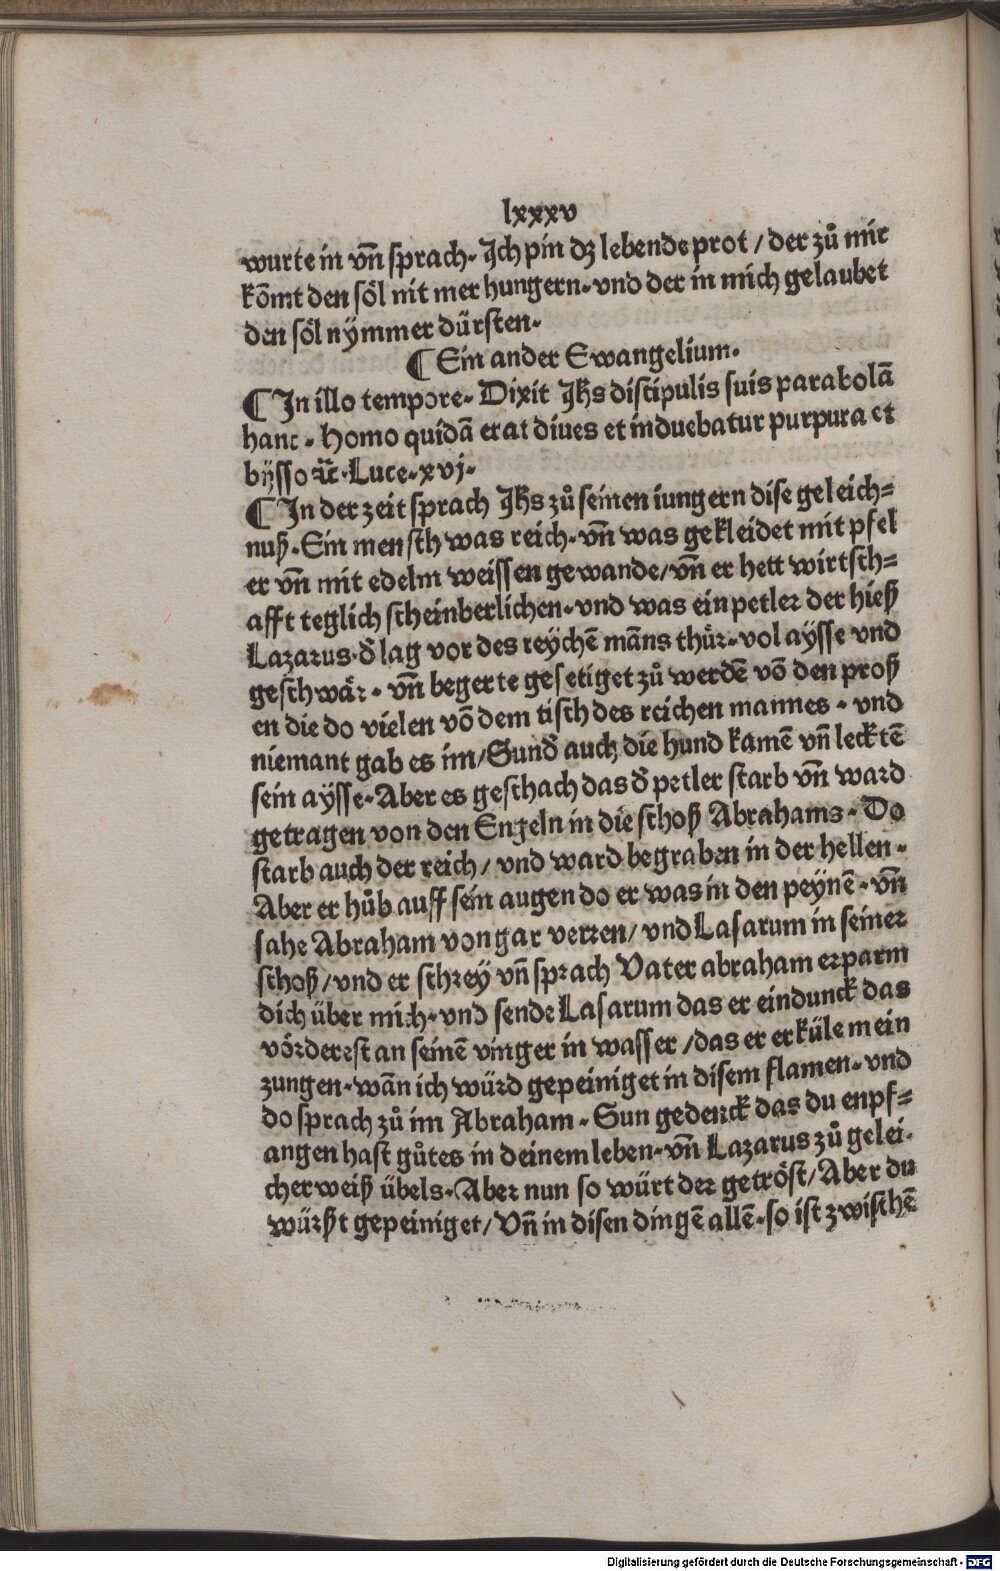 lxxxv
wurte in vn̄ sprach. Ich pin dz lebende prot / der zů mir
kōmt den söl nit mer hungern. vnd der in mich gelaubet
den söl nÿmmer dürsten.
¶ Ein ander Ewangelium.
¶ In illo tempore. Dixit Ihs discipulis suis parabolā
hanc. Homo quidā erat diues et induebatur purpura et
bÿsso ⁊c̄. Luce. xvj.
¶ In der zeit sprach Ihs zů seinen iungern dise geleich=
nuß. Ein mensch was reich. vn̄ was gekleidet mit pfel
er vn̄ mit edelm weissen gewande / vn̄ er hett wirtsch=
afft teglich scheinberlichen. vnd was ein petler der hieß
Lazarus. d̄ lag vor des reÿchē māns thür. vol aÿsse vnd
geschwär. vn̄ begerte gesetiget zů werdē vō den proß
en die do vielen vō dem tisch des reichen mannes. vnd
niemant gab es im / Sund̄ auch die hund kamē vn̄ lecktē
sein aÿsse. Aber es geschach das d̄ petler starb vn̄ ward
getragen von den Engeln in die schoß Abrahams. Do
starb auch der reich / vnd ward begraben in der hellen.
Aber er hůb auff sein augen do er was in den peÿnē. vn̄
sahe Abraham von gar verren / vnd Lasarum in seiner
schoß / vnd er schreÿ vn̄ sprach Vater abraham erparm
dich über mich. vnd sende Lasarum das er eindunck das
vörderest an seinē vinger in wasser / das er erküle mein
zungen. wān ich würd gepeiniget in disem flamen. vnd
do sprach zů im Abraham. Sun gedenck das du enpf=
angen hast gůtes in deinem leben. vn̄ Lazarus zů gelei.
cherweiß übels. Aber nun so würt der getröst / Aber du
würßt gepeiniget / Vn̄ in disen dingē allē. so ist zwischē
Digitalisierung gefördert durch die Deutsche Forschungsgemeinschaft - DFG